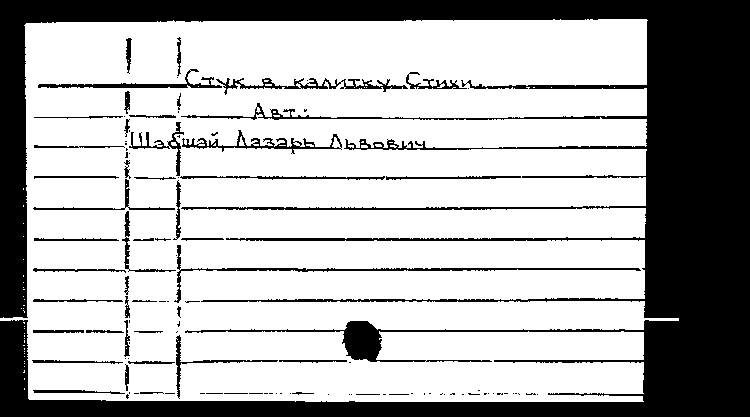 Стук в калитку Стихи.
Авт.:
Шабшай, Лазарь Львович.